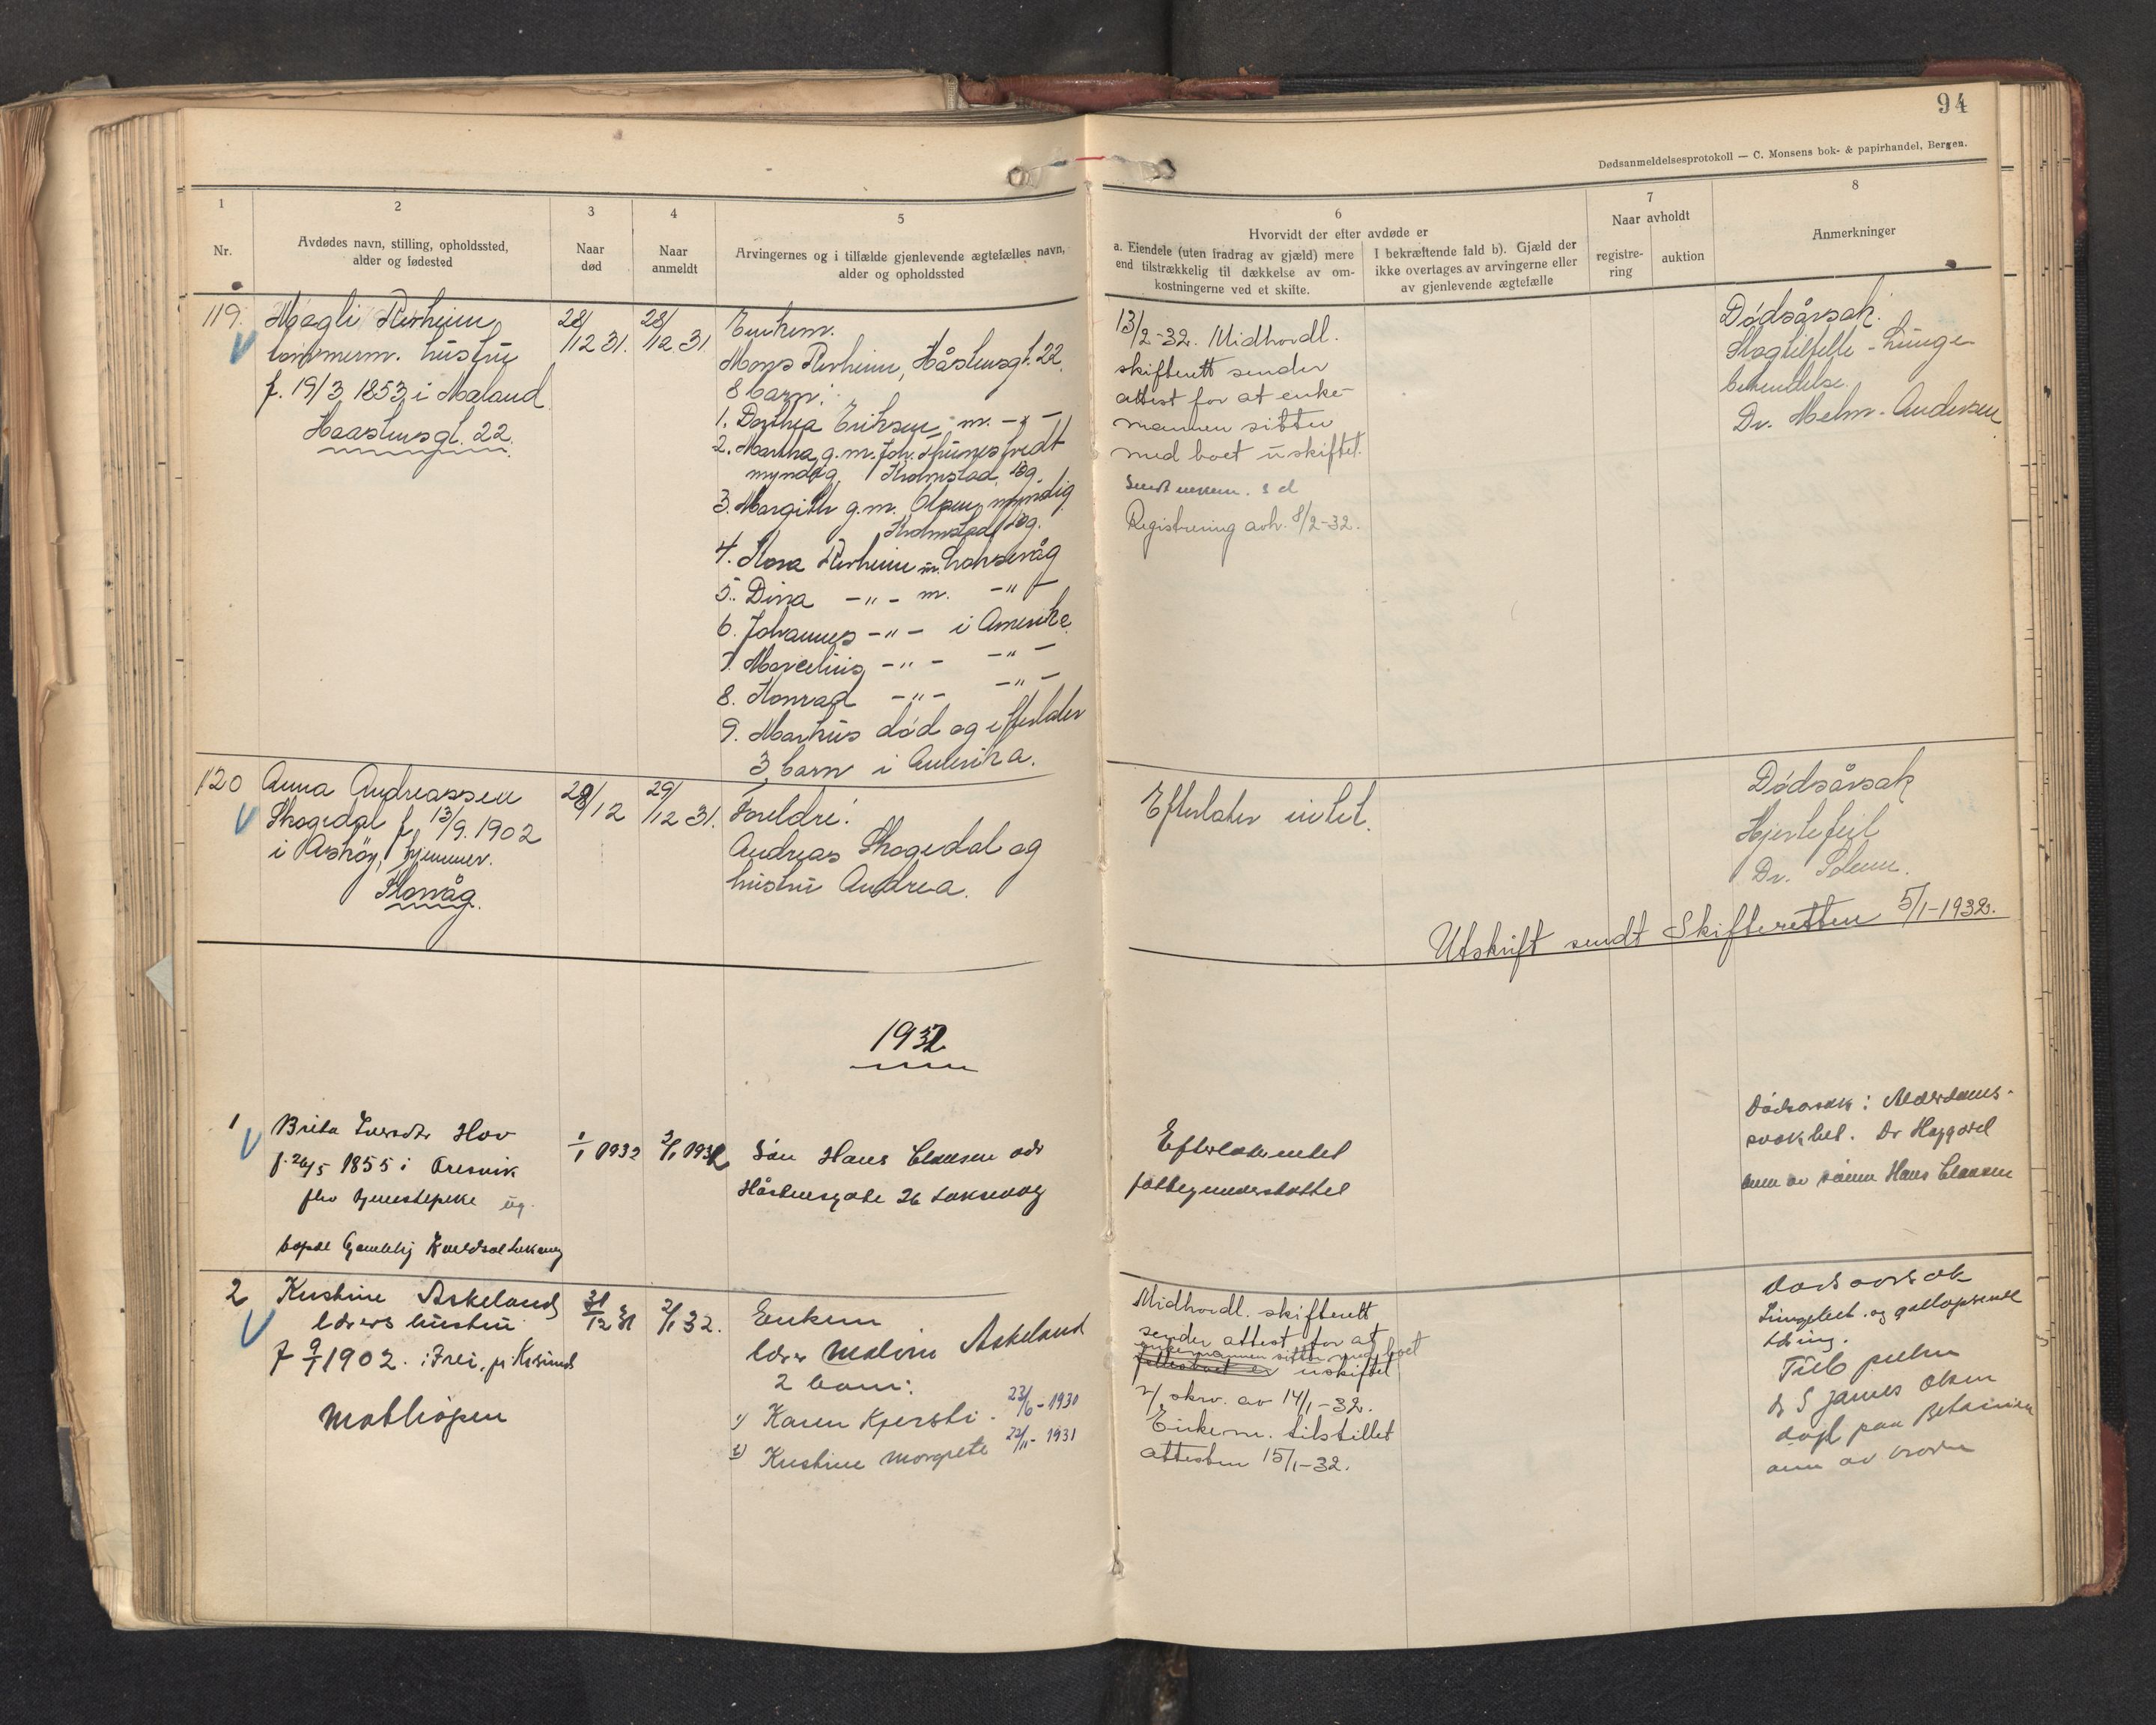 94
Dødsanmeldelsesprotokoll — C. Monsens bok- & papirhandel, Bergen.
1
Nr.
2
Avdødes navn, stilling, opholdssted,
alder og fødested
3
Naar
død
4
Naar
anmeldt
5
Arvingernes og i tilfælde gjenlevende ægtefælles navn,
alder og opholdssted
6
Hvorvidt der efter avdøde er
a. Eiendele (uten fradrag av gjæld) mere
end tilstrækkelig til dækkelse av om-
kostningerne ved et skifte.
I bekræftende fald b). Gjæld der
ikke overtages av arvingerne eller
av gjenlevende ægtefælle
7
Naar avholdt
registre-
ring
auktion
8
Anmerkninger
119.
Magli Rerheim
tømmerm. hustru
f. 19/3 1853 i
Haasteinsgt. 22.
28/12 31.
28/12 31
Enkem.
Mons Rerheim, Håsteinsgt. 22.
8 barn:
1. Dorthea Eriksen m. -"-
2. Martha g.m. Joh.
myndig, Holmstad, Løg.
3. Margith g.m. Olsen myndig
Holmstad Løg.
4. Rerheim m. Laksevåg
5. Dina -"- m. -"-
6. Johannes -"- i Amerika
7. Marcelius -"- -"-
8. Konrad -"- -"-
9. Markus død og efterlater
3 barn i Amerika.
13/2-32. Midhordl.
skifterett sender
attest for at enke-
mannen sitter
med boet uskiftet.
Sendt enkem. s d
Registrering avh. 8/2-32.
Dødsårsak:
Slagtilfelle - Lunge
betendelse.
Dr. Andersen
120
Anna Andreassen
Skogedal f. 13/9. 1902
i Askøy, hjemmev.
28/12
29/12 31.
Foreldre:
Andreas Skogedal og
hustru Andrea.
Efterlater intet.
Dødsårsak
Hjertefeil
Dr.
Utskrift sendt Skifteretten 5/1-1932.
1932
1
Brita Iversdtr Hov
f. 26/5 1855 i
fhv tjenestepike ug.
bopæl Gamlehj
1/1 1932
2/1 1932
Søn Hans Clausen adr
Håsteinsgate 26 Laksevåg
Efterlater intet
fattigunderstøttet
Dødsårsak: Alderdoms-
svakhet. Dr
anm av sønnen Hans Clausen
2
Kristine Askeland
lærers hustru
f 9/1 1902. i Frei, pr Krsund
Mathopen
31/12 31
2/1 32.
Enkem
lærer Askeland
2 barn:
1) Karen Kjersti. 23/6-1930
2) Kristine Margrete 22/11-1931
Midhordl. skifterett
sender attest for at
enkemannen sitter med boet
uskiftet
skrv. av 14/1-32.
Enkem. tilstillet
attesten 15/1-32.
Dødsårsak
og galloperende
tæring.
Dr S James Olsen
død paa Betanien
anm av